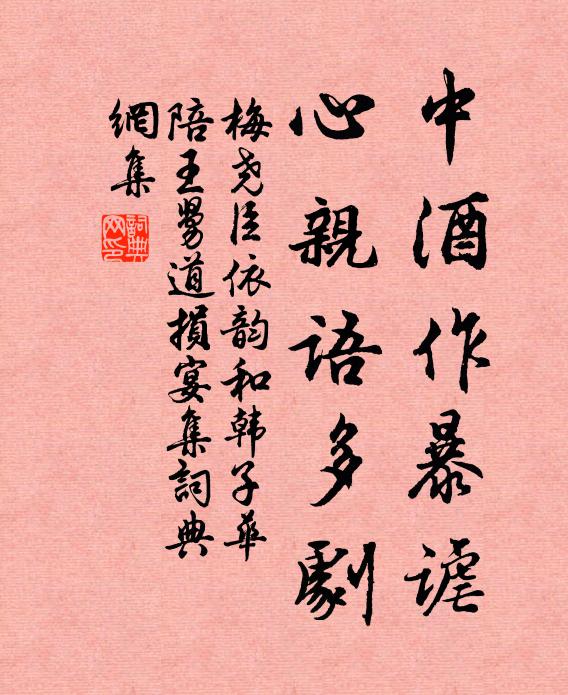 中酒作暴謔
心親語多劇
梅尧臣依韵和韩子华
陪王舅道損宴集詞典
網集
詞典
网印